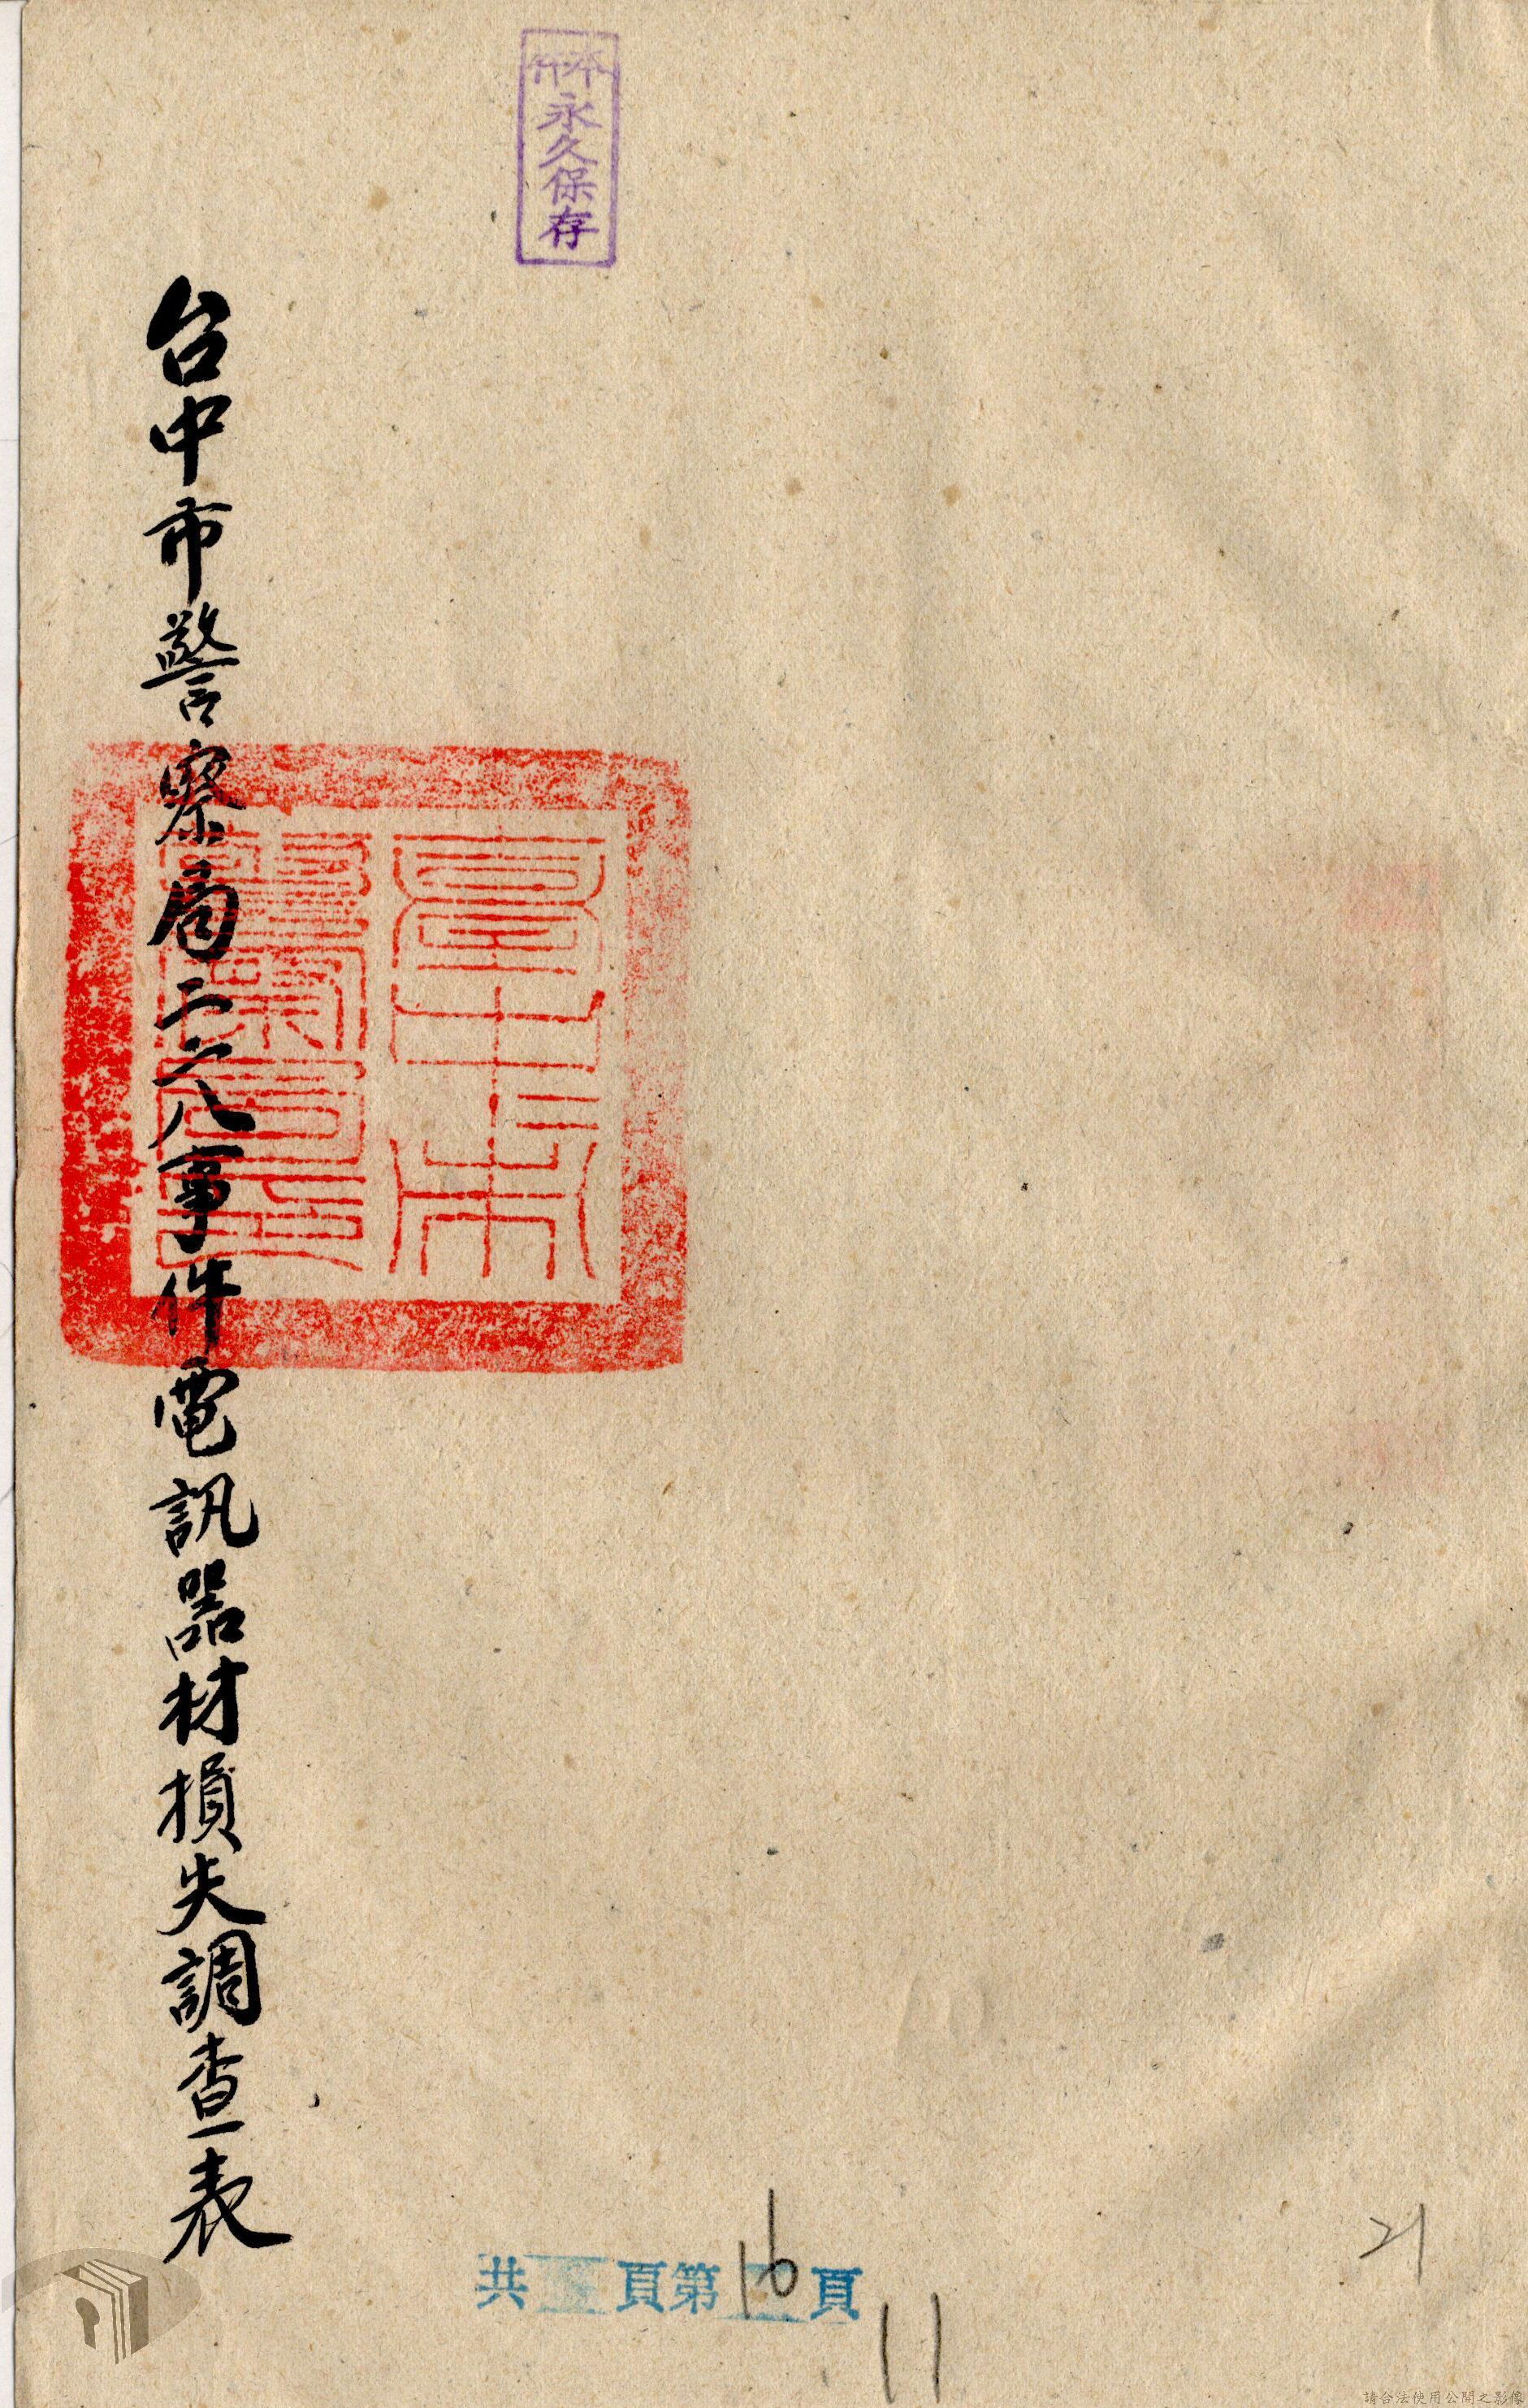 永久保存
臺中市警察局印
台中市警察局二二八事件電訊器材損失調查表
共 頁第16頁
11
21
請合法使用公開之影像